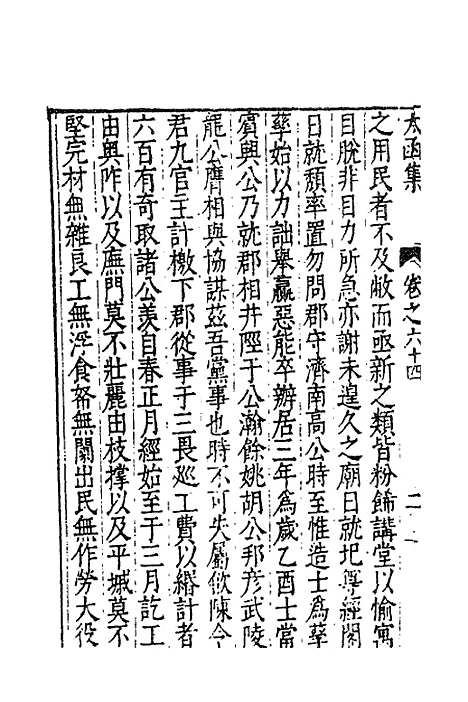 太函集 卷之六十四 二
之用民者不及敝而亟新之類皆粉餙講堂以愉寓
目脫非目力所急亦謝未遑久之廟日就圮尊經閣
日就頽率置勿問郡守濟南高公時至惟造士為孳
孳始以力詘舉贏惡能卒辦居三年為歲乙酉士當
賓興公乃就郡相井陘于公瀚餘姚胡公邦彦武陵
龍公膺相與協謀茲吾黨事也時不可失屬歙陳令
君九官主計檄下郡從事于三畏廵工費以緡計者
六百有奇取諸公羡自春正月經始至于三月訖工
由奥阼以及廡門莫不壯麗由枝撑以及平墄莫不
堅完材無雜良工無浮食帑無闌出民無作勞大役